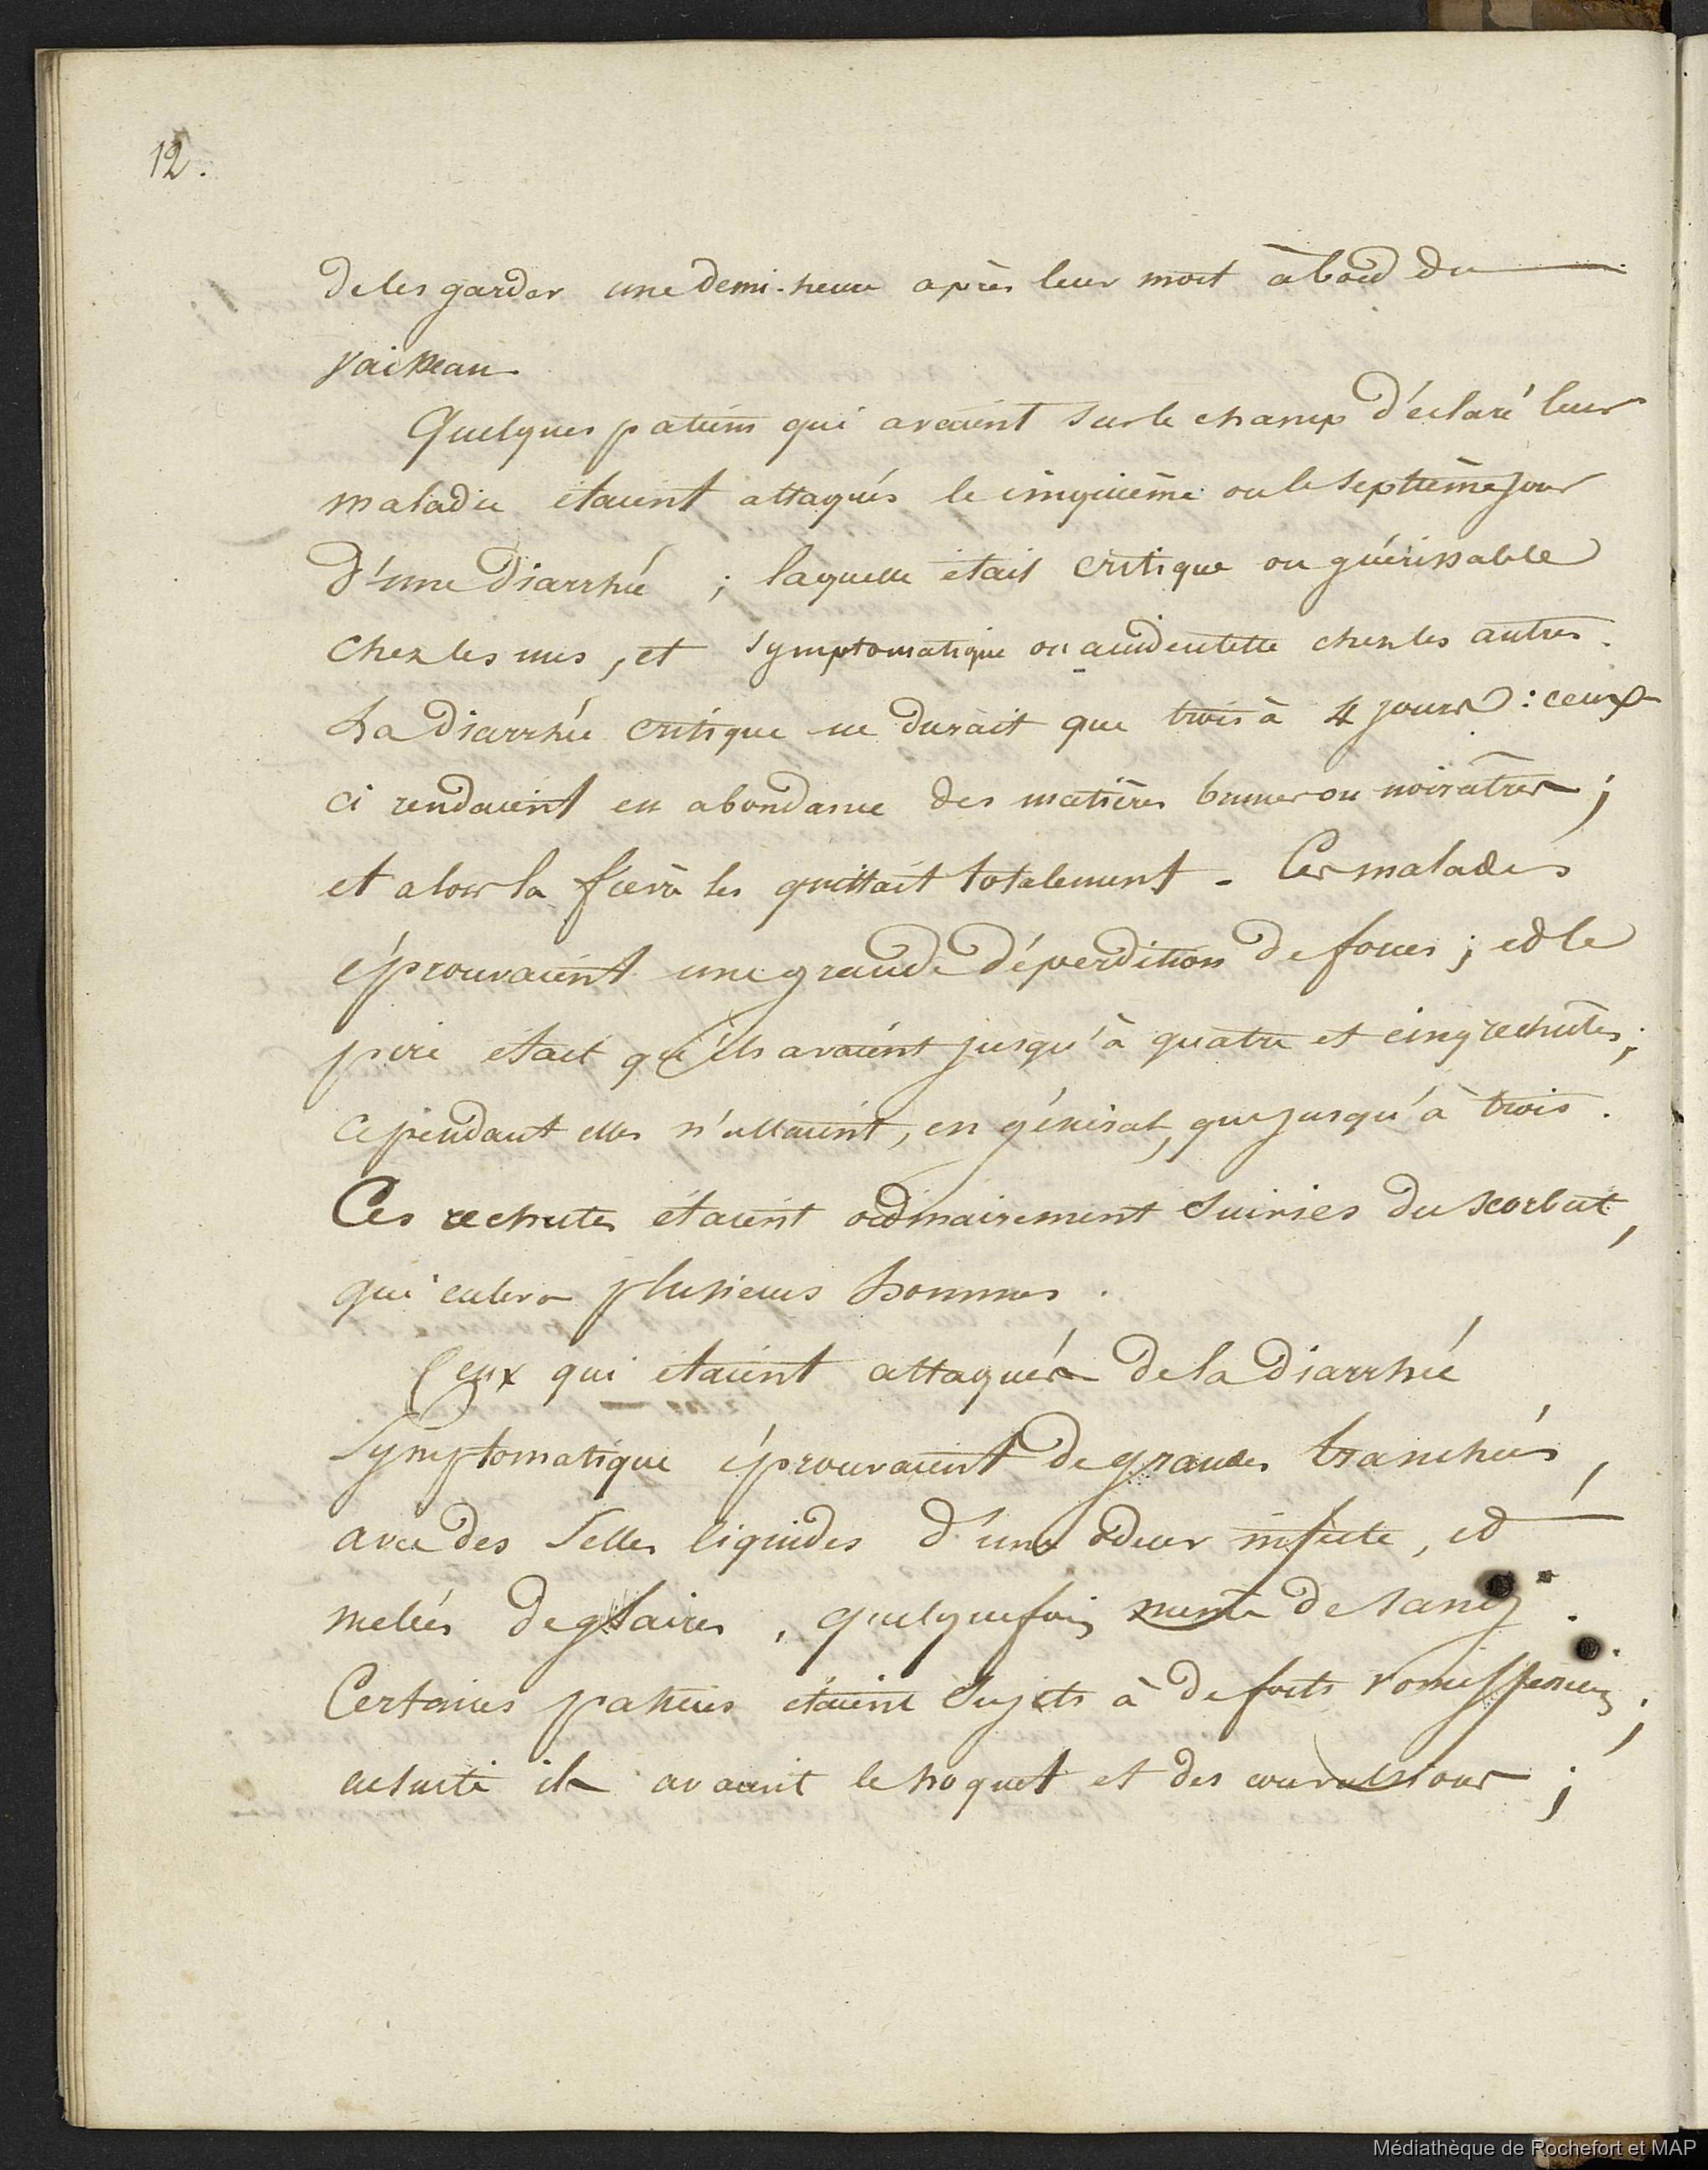 12.
de les garder une demi-heure après leur mort à bord du
vaisseau.
Quelques patiens qui avaient sur le champ d'éclaré leur
maladie étaient attaqués le cinquième ou le septième jour
d'une diarrhée ; laquelle était critique ou guérissable
chez les uns, et symptomatique ou accidentelle chez les autres.
La diarrhée critique ne durait que trois à 4 jours : ceux
ci rendaient en abondance des matières brunes ou noirâtres ;
et alors la fièvre les quittait totalement. Ces malades
éprouvaient une grande déperdition de forces ; et le
pire était qu'ils avaient jusqu'à quatre et cinq rechutes ;
cependant elles n'allaient, en général, que jusqu'à trois.
Ces rechutes étaient ordinairement suivies du scorbut,
qui enleva plusieurs hommes.
Ceux qui étaient attaqués de la diarrhée
symptomatique éprouvaient de grandes tranchées,
avec des selles liquides d'une odeur infecte, et
melées de glaires, quelquefois même de sang.
Certains patiens étaient sujets à de forts vomissemens ;
ensuite ils avaient le hoquet et des convulsions ;
Médiathèque de Rochefort et MAP